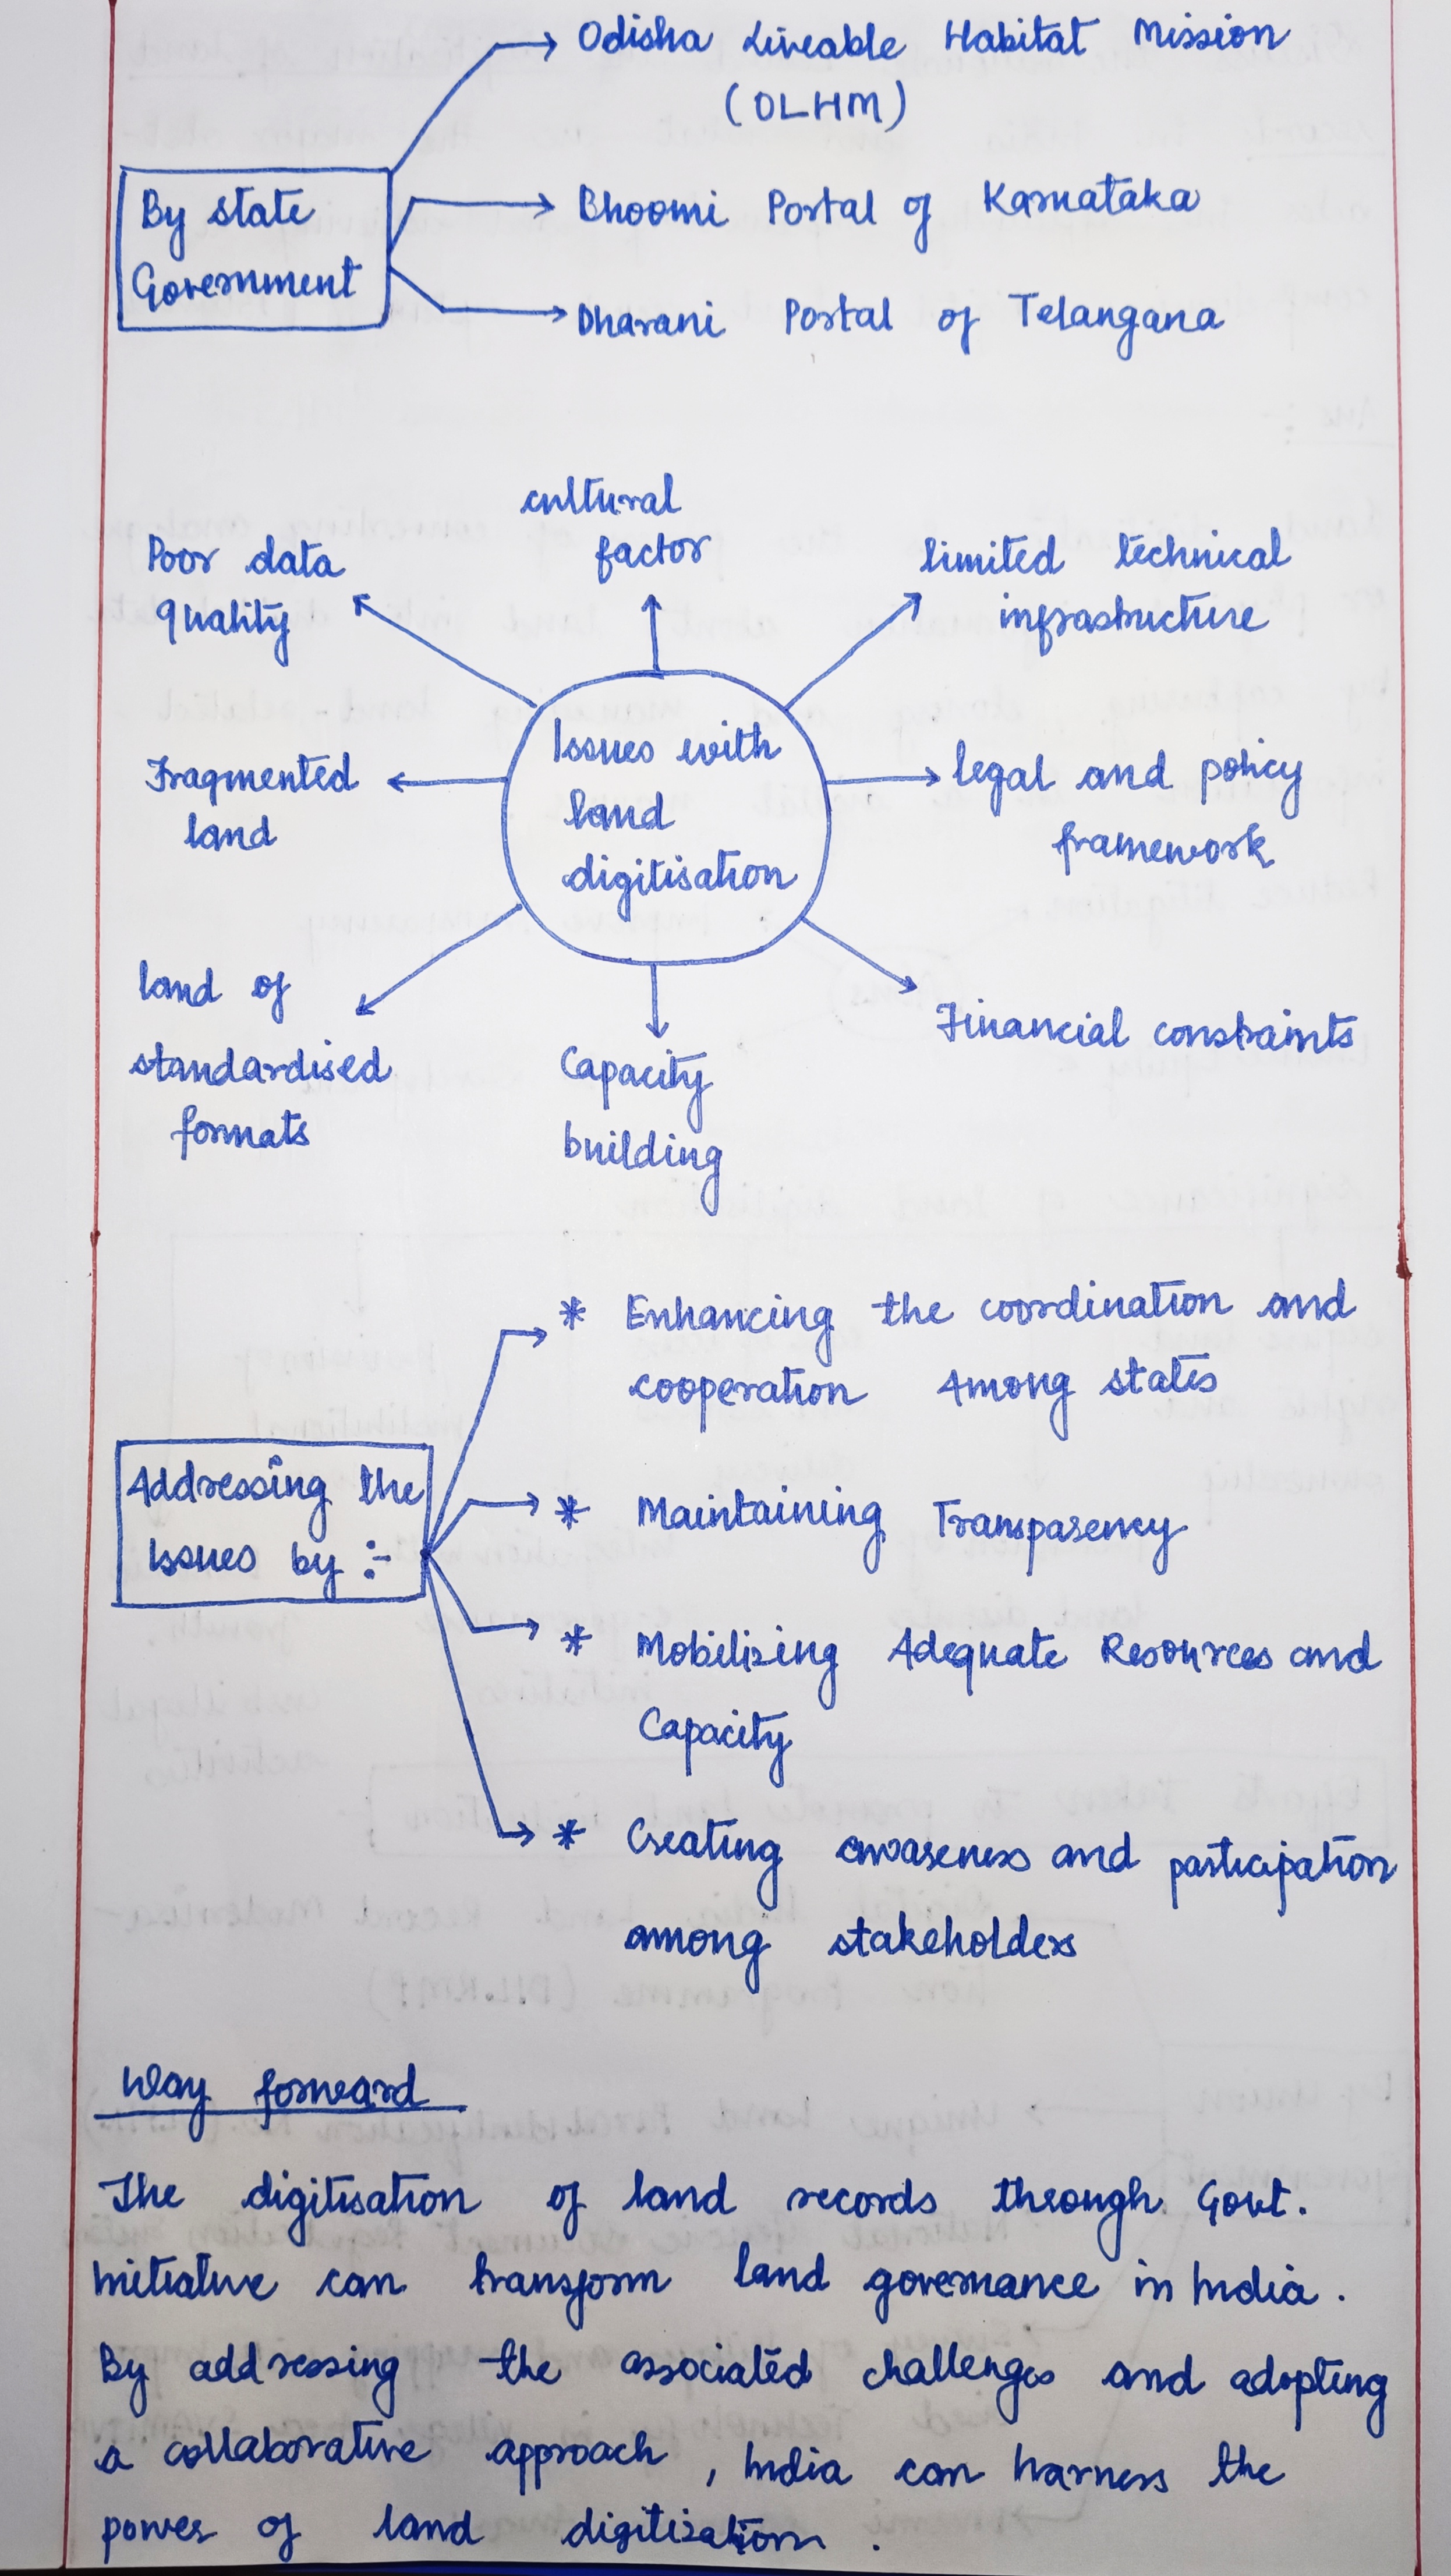 Odisha Liveable Habitat Mission
(OLHM)
By state
Government
Bhoomi Portal of Karnataka
Dharani Portal of Telangana
cultural
factor
Poor data
quality
limited technical
infrastructure
Issues with
land
digitisation
Fragmented
land
legal and policy
framework
land of
standardised
formats
Capacity
building
Financial constraints
Addressing the
Issues by :-
* Enhancing the coordination and
cooperation Among states
* Maintaining Transparency
* Mobilizing Adequate Resources and
Capacity
* Creating awareness and participation
among stakeholders
Way forward
The digitisation of land records through Govt.
Initiative can transform land governance in India.
By addressing the associated challenges and adopting
a collaborative approach, India can harness the
power of land digitization.